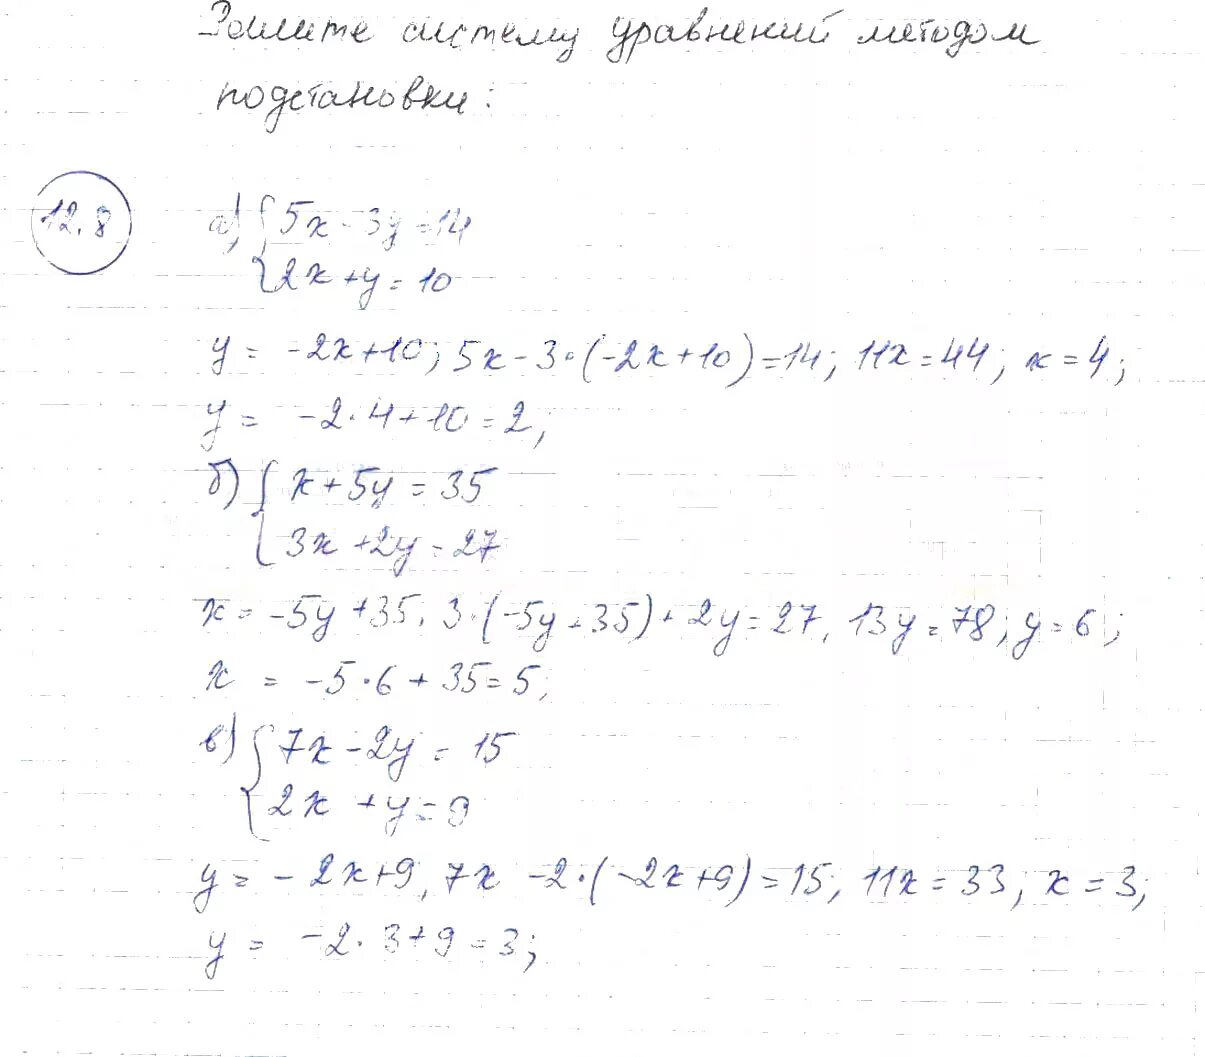 Решите систему уравнений методом
подстановки:
12.8
а) { 5x - 3y = 14
2x + y = 10
y = -2x+10; 5x - 3·(-2x+10) = 14; 11x = 44; x = 4;
y = -2·4+10 = 2;
б) { x + 5y = 35
3x + 2y = 27
x = -5y + 35, 3·(-5y+35) + 2y = 27, 13y = 78; y = 6;
x = -5·6 + 35 = 5;
в) { 7x - 2y = 15
2x + y = 9
y = -2x+9, 7x - 2·(-2x+9) = 15, 11x = 33, x = 3;
y = -2·3+9 = 3;